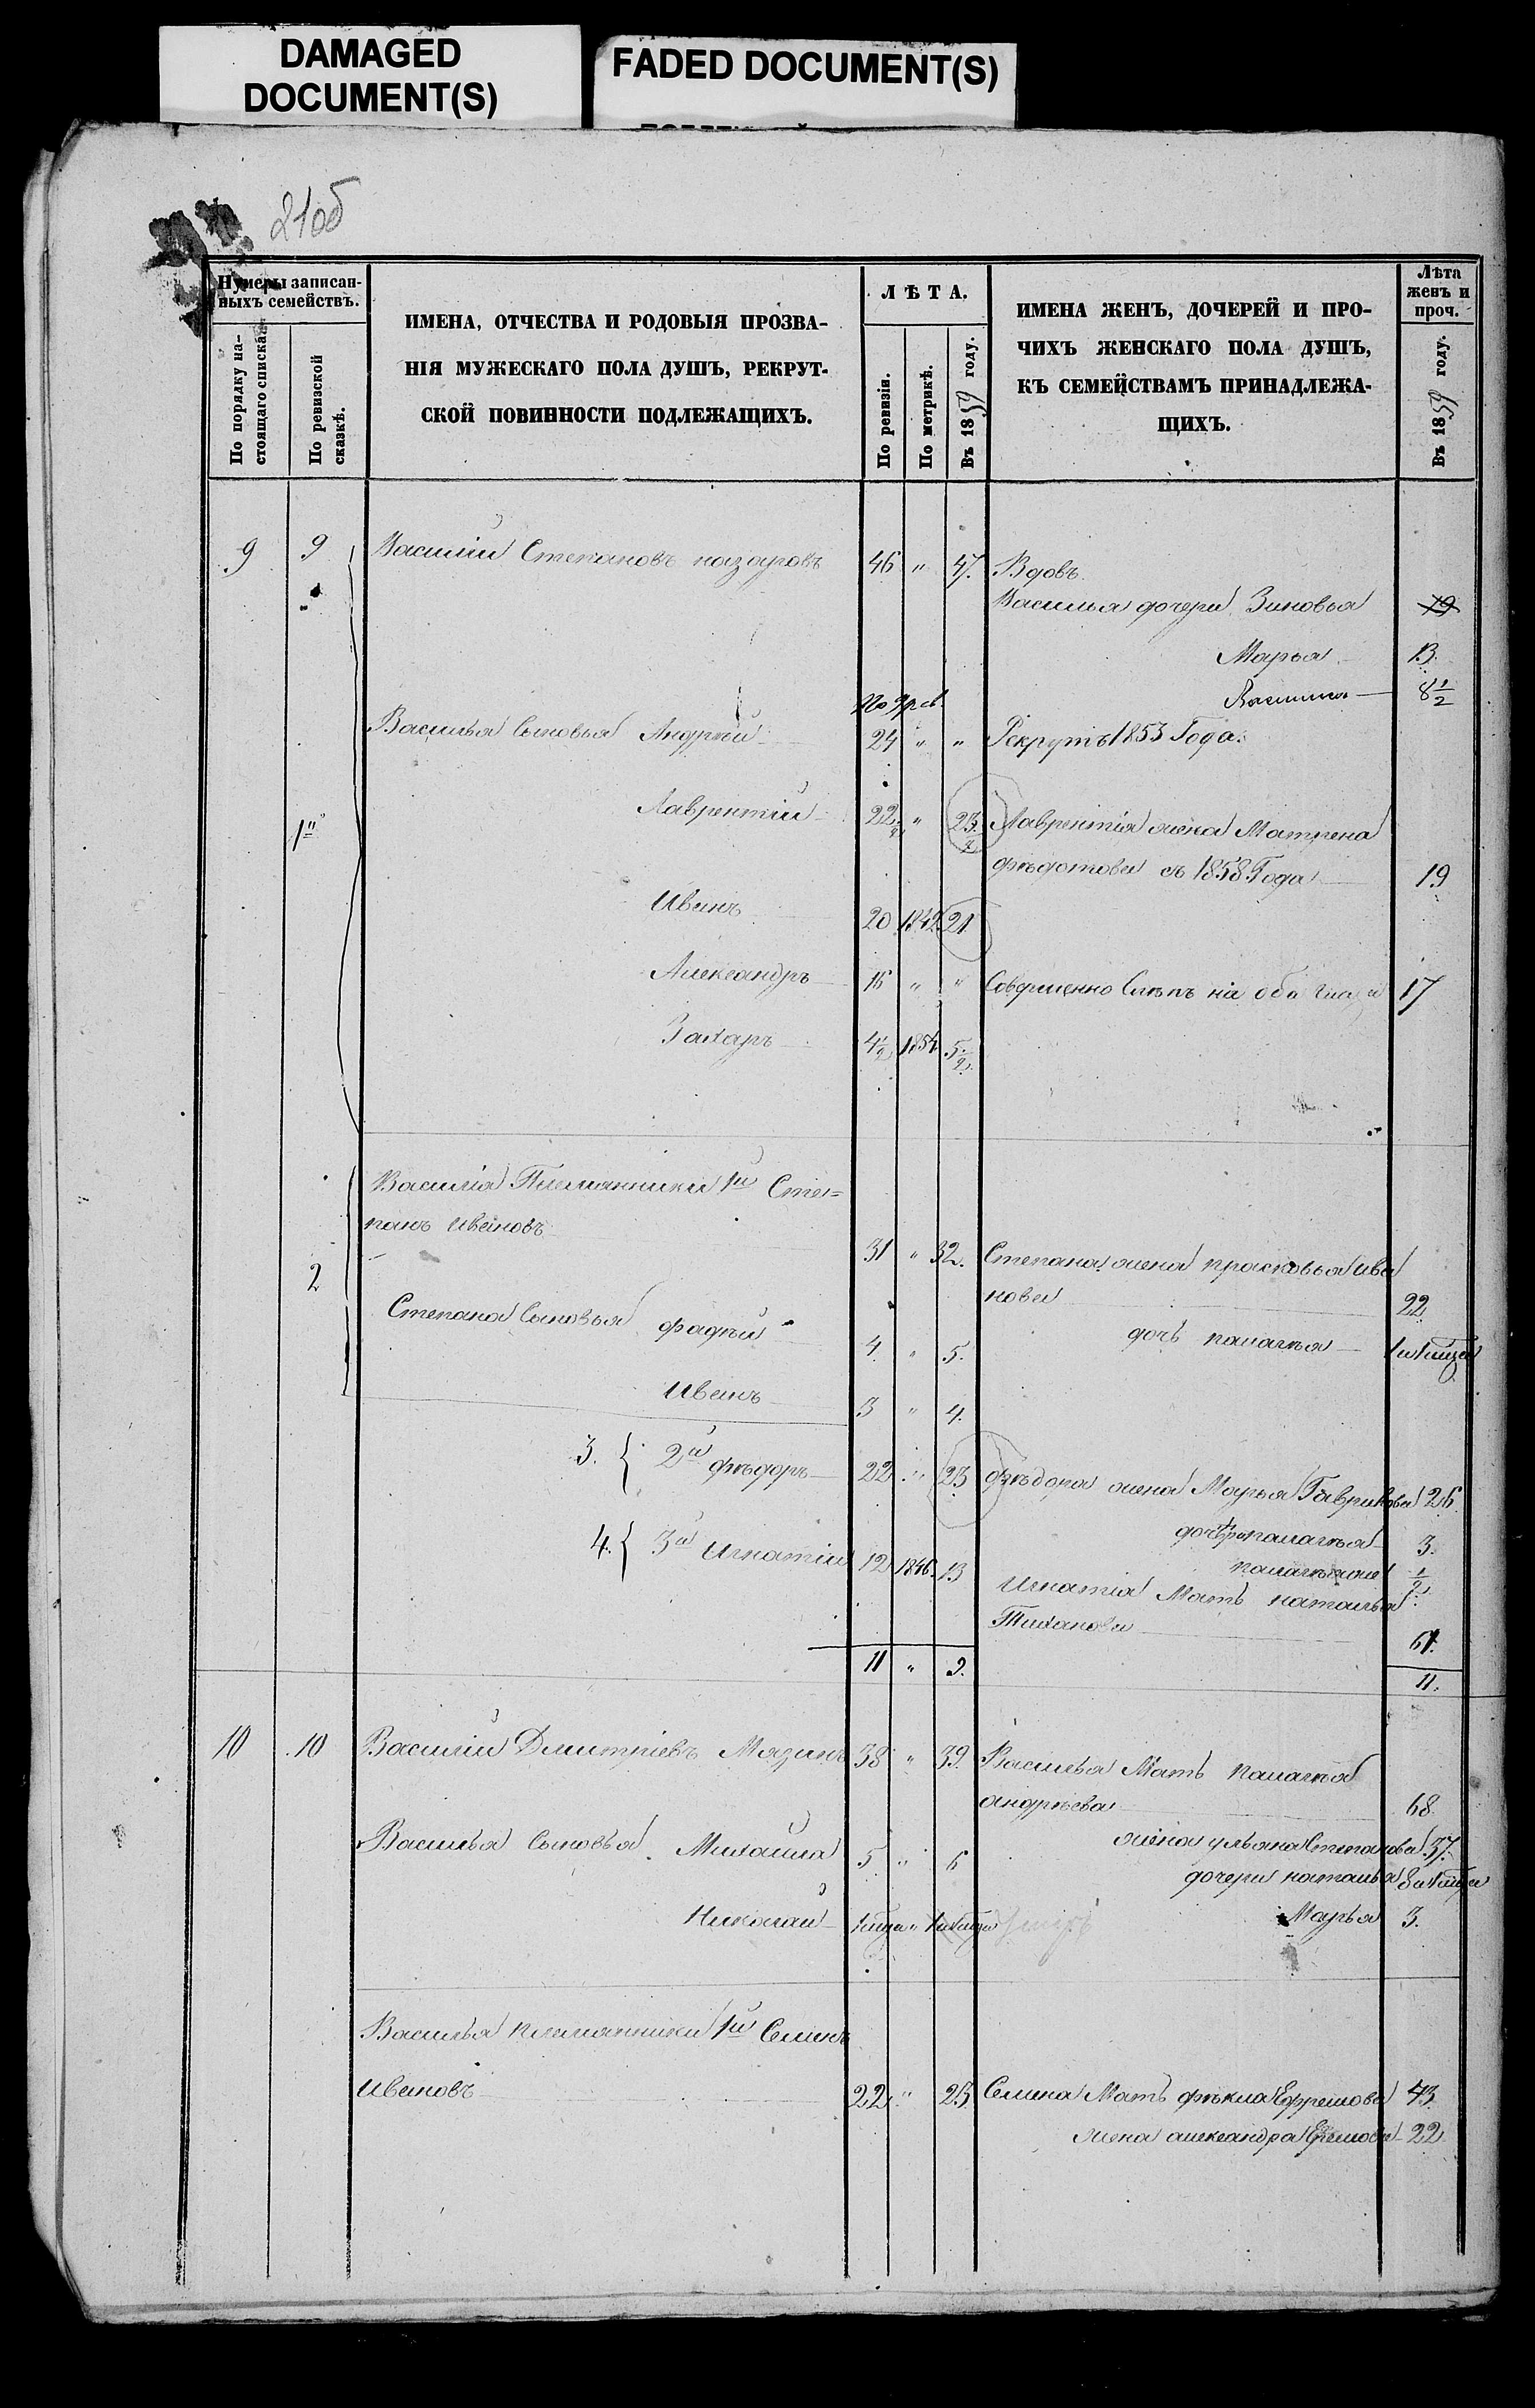 DAMAGED
DOCUMENT(S)
FADED DOCUMENT(S)
21об
Нумеры записан-
ныхъ семействъ.
По порядку на-
стоящаго списка.
По ревизской
сказкѣ.
ИМЕНА, ОТЧЕСТВА И РОДОВЫЯ ПРОЗВА-
НІЯ МУЖЕСКАГО ПОЛА ДУШЪ, РЕКРУТ-
СКОЙ ПОВИННОСТИ ПОДЛЕЖАЩИХЪ.
ЛѢТА.
По ревизіи.
По метрикѣ.
Въ 1859 году.
ИМЕНА ЖЕНЪ, ДОЧЕРЕЙ И ПРО-
ЧИХЪ ЖЕНСКАГО ПОЛА ДУШЪ,
КЪ СЕМЕЙСТВАМЪ ПРИНАДЛЕЖА-
ЩИХЪ.
Лѣта
женъ и
проч.
Въ 1859 году.
9 9 Василий Степановъ назаровъ 46 " 47. Вдовъ
Василья дочери Зиновья 19
Марья 13.
8 1/2
Василья Сыновья Андрѣй 24 " " Рекрутъ 1853 Года.
1й Лаврентий 22 " 23 Лаврентія жена Матрена
фѣдотова съ 1858 Года 19
Иванъ 20 1842 21
Александръ 16 " " Совершенно Слѣпъ на оба глаза 17
Захаръ 4 1/2 1854 5 1/2
Василія Племянники 1й Сте=
панъ Ивановъ 31 " 32.
2 Степана жена прасковья ива
нова 22
Степана Сыновья фадѣй 4 " 5.
дочь палагѣя
Иванъ 3 " 4.
3. { 2й фѣдоръ 22 " 23 фѣдора жена Марья Гаврилова 26
дочери палагѣя 3.
4. { 3й Игнатій 12 1846. 13
1/2
Игнатія Мать наталья
Тиханова 61.
11 " 9. 11.
10 10 Василий Дмитріевъ Мазинъ 38 " 39. Василья Мать палагѣя
андрѣева 68
Василья Сыновья Михаила 5 " 6
жена ульяна Степанова 37.
дочери наталья
Николай
Марья 3.
Василья племянники 1й Семинъ
Ивановъ 22 " 23. Семина Мать фѣкла Ефремова 43.
жена александра 22